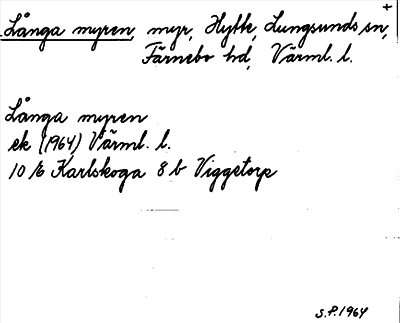 +
Långa myren, myr, Hytte, Lungsunds sn,
Färnebo hd, Värml. l.
Långa myren
ek (1964) Värml. l.
10 E Karlskoga 8 b Viggetorp
S.P. 1964